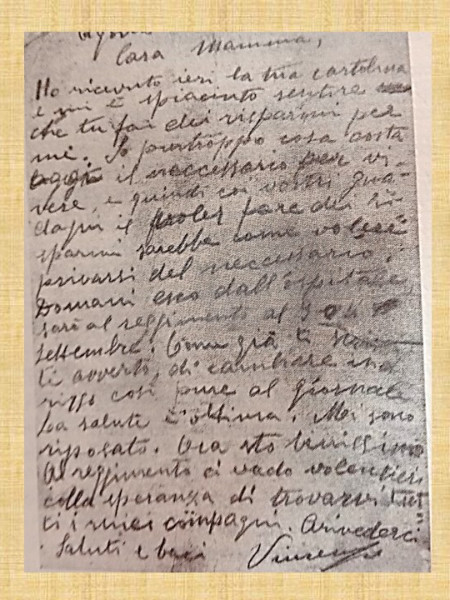 Agosto
Cara Mamma,
Ho ricevuto ieri la tua cartolina
e mi è spiaciuto sentire
che tu fai dei risparmi per
me. So purtroppo cosa costa
oggi il neccessario per vi-
vere, e quindi coi vostri gua-
dagni il poter fare dei ri-
sparmi sarebbe come volersi
privarsi del neccessario.
Domani esco dall'ospitale,
sarò al reggimento al 3 o 4
Settembre. Come già
ti avverto, di cambiare indi-
rizzo così pure al giornale
La salute è ottima. Mi sono
riposato. Ora sto benissimo
Al reggimento ci vado volentieri
colla speranza di trovarvi tut-
ti i miei compagni. Arrivederci
Saluti e baci Vincenzo